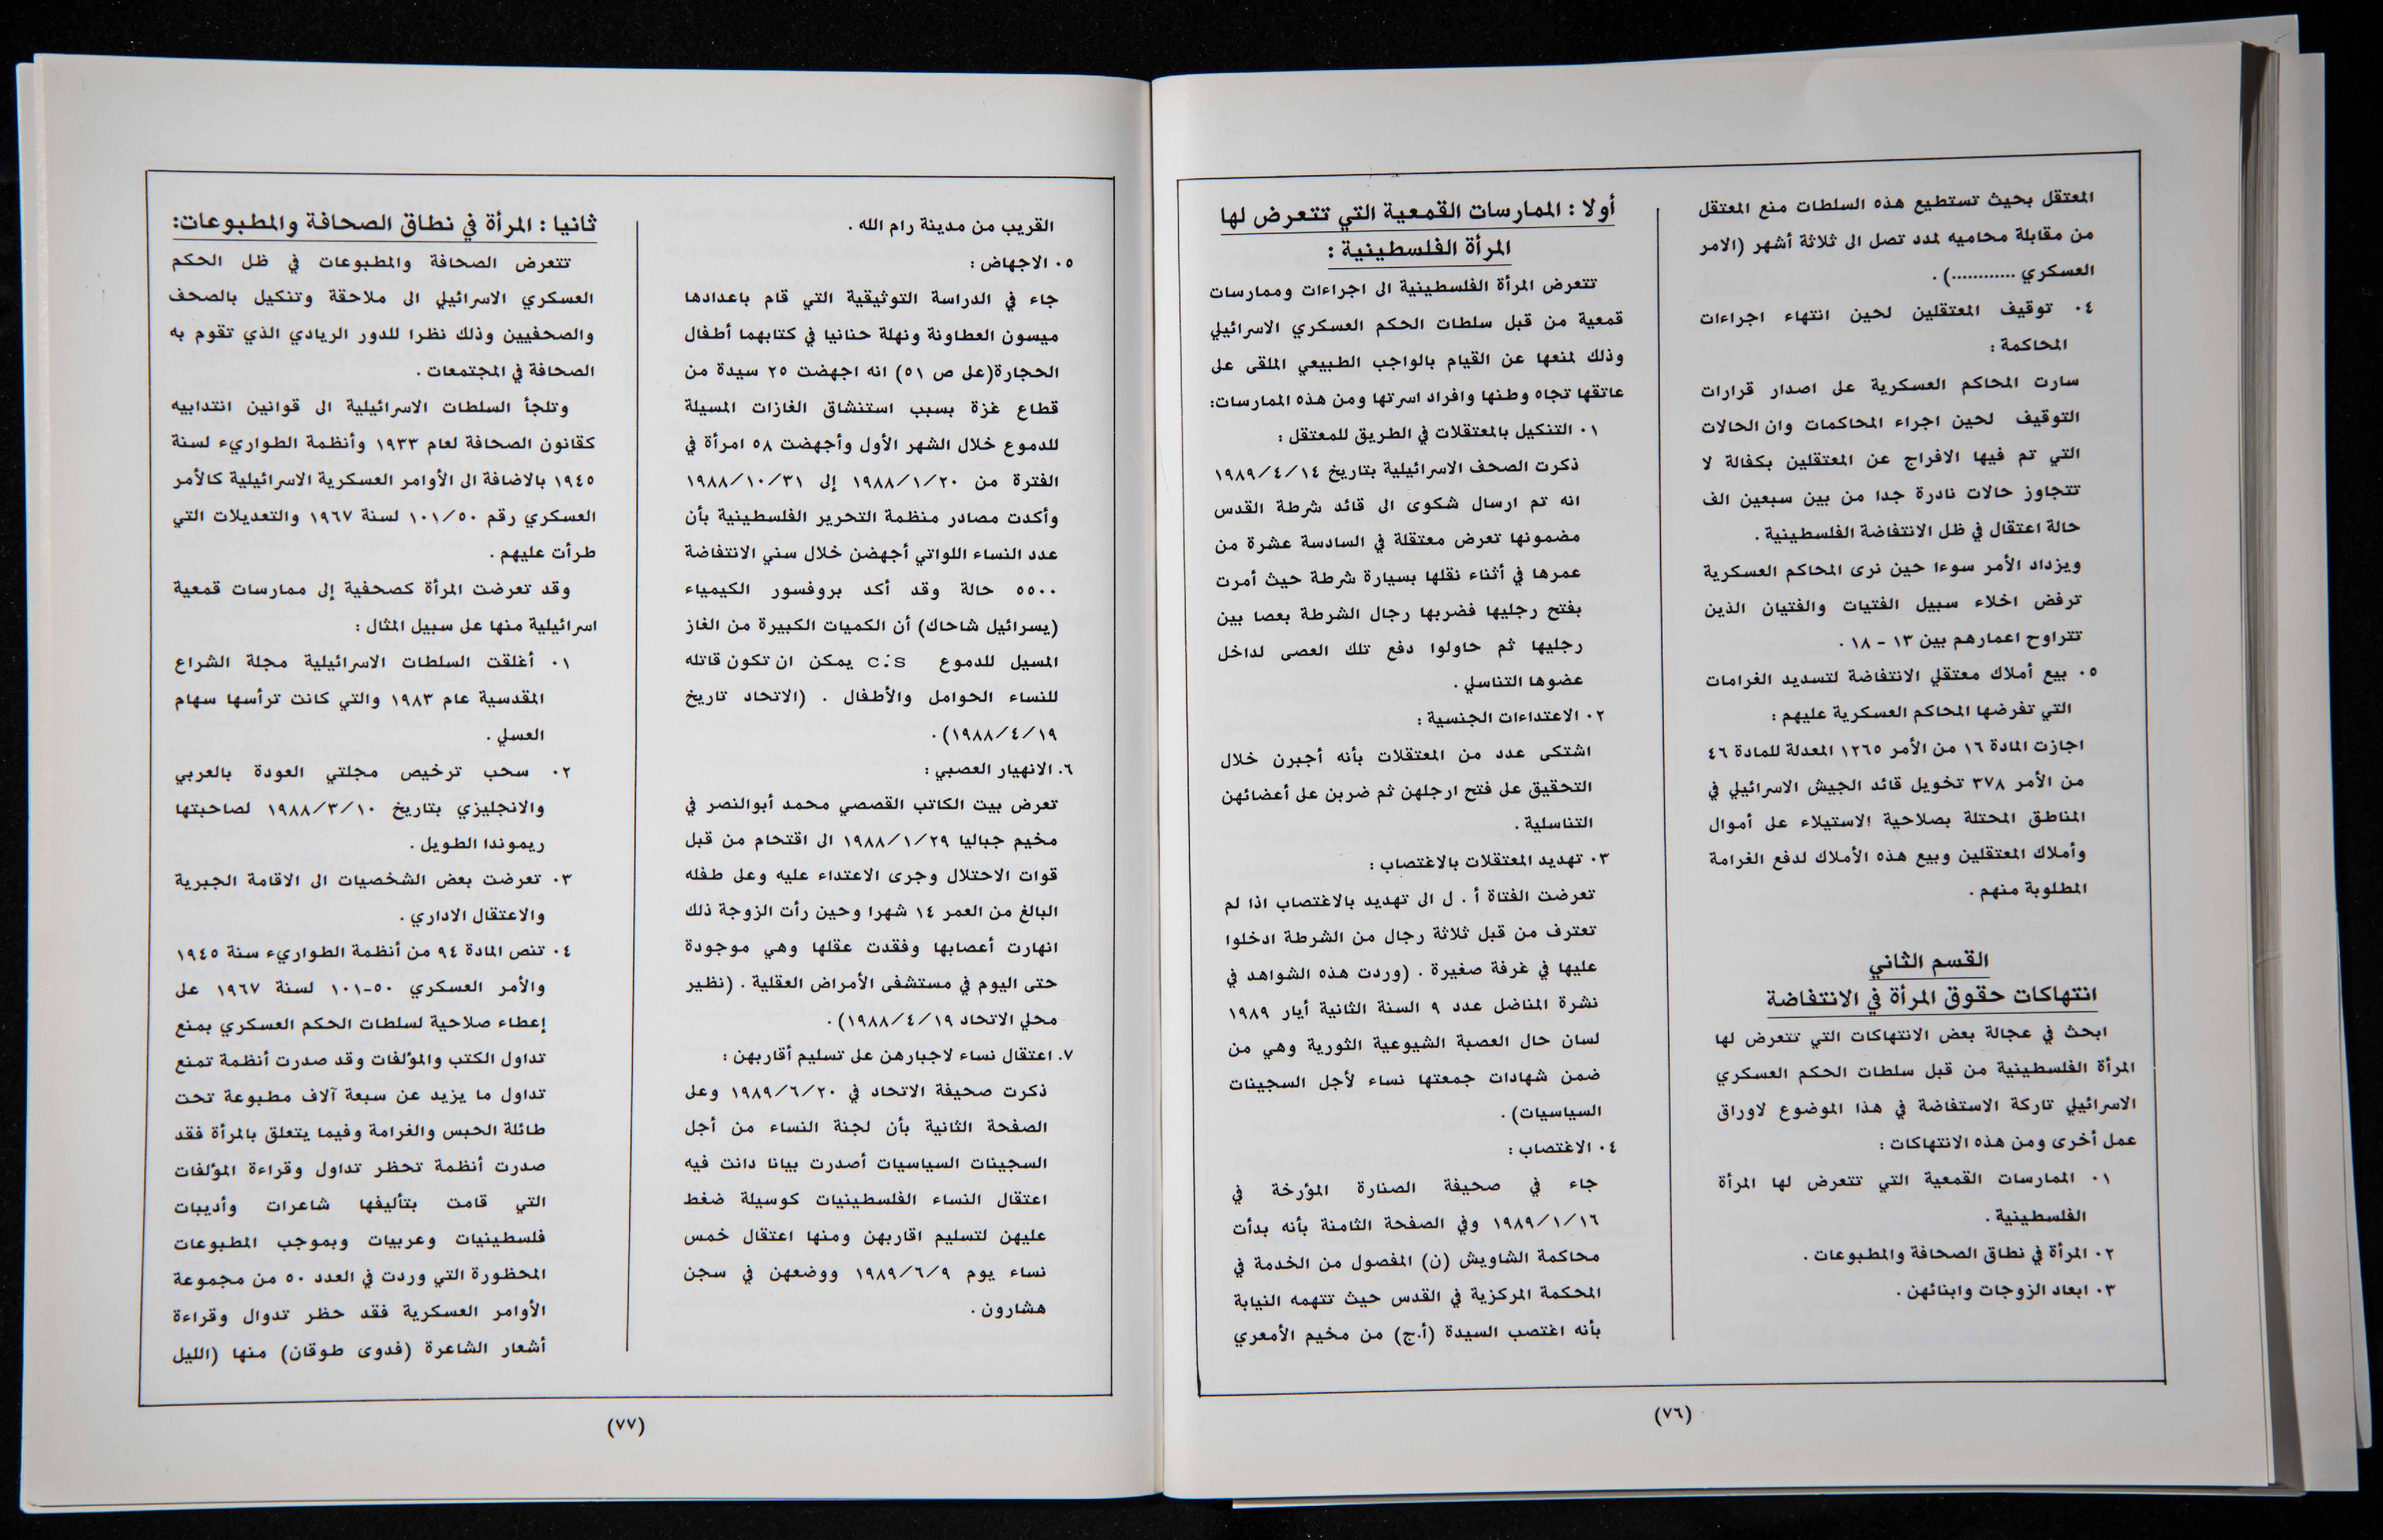 المعتقل بحيث تستطيع هذه السلطات منع المعتقل
من مقابلة محاميه لمدد تصل الى ثلاثة أشهر (الامر
العسكري ............) .
٠٤ توقيف المعتقلين لحين انتهاء اجراءات
المحاكمة :
سارت المحاكم العسكرية على اصدار قرارات
التوقيف لحين اجراء المحاكمات وان الحالات
التي تم فيها الافراج عن المعتقلين بكفالة لا
تتجاوز حالات نادرة جدا من بين سبعين الف
حالة اعتقال في ظل الانتفاضة الفلسطينية .
ويزداد الأمر سوءا حين نرى المحاكم العسكرية
ترفض اخلاء سبيل الفتيات والفتيان الذين
تتراوح اعمارهم بين ١٣ - ١٨ .
٠٥ بيع أملاك معتقلي الانتفاضة لتسديد الغرامات
التي تفرضها المحاكم العسكرية عليهم :
اجازت المادة ١٦ من الأمر ١٢٦٥ المعدلة للمادة ٤٦
من الأمر ٣٧٨ تخويل قائد الجيش الاسرائيلي في
المناطق المحتلة بصلاحية الاستيلاء على أموال
وأملاك المعتقلين وبيع هذه الأملاك لدفع الغرامة
المطلوبة منهم .
القسم الثاني
انتهاكات حقوق المرأة في الانتفاضة
ابحث في عجالة بعض الانتهاكات التي تتعرض لها
المرأة الفلسطينية من قبل سلطات الحكم العسكري
الاسرائيلي تاركة الاستفاضة في هذا الموضوع لاوراق
عمل أخرى ومن هذه الانتهاكات :
٠١ الممارسات القمعية التي تتعرض لها المرأة
الفلسطينية .
٠٢ المرأة في نطاق الصحافة والمطبوعات .
٠٣ ابعاد الزوجات وابنائهن .
أولا : الممارسات القمعية التي تتعرض لها
المرأة الفلسطينية :
تتعرض المرأة الفلسطينية الى اجراءات وممارسات
قمعية من قبل سلطات الحكم العسكري الاسرائيلي
وذلك لمنعها عن القيام بالواجب الطبيعي الملقى على
عاتقها تجاه وطنها وافراد اسرتها ومن هذه الممارسات:
٠١ التنكيل بالمعتقلات في الطريق للمعتقل :
ذكرت الصحف الاسرائيلية بتاريخ ١٩٨٩/٤/١٤
انه تم ارسال شكوى الى قائد شرطة القدس
مضمونها تعرض معتقلة في السادسة عشرة من
عمرها في أثناء نقلها بسيارة شرطة حيث أمرت
بفتح رجليها فضربها رجال الشرطة بعصا بين
رجليها ثم حاولوا دفع تلك العصى لداخل
عضوها التناسلي .
٠٢ الاعتداءات الجنسية :
اشتكى عدد من المعتقلات بأنه أجبرن خلال
التحقيق على فتح ارجلهن ثم ضربن على أعضائهن
التناسلية .
٠٣ تهديد المعتقلات بالاغتصاب :
تعرضت الفتاة أ . ل الى تهديد بالاغتصاب اذا لم
تعترف من قبل ثلاثة رجال من الشرطة ادخلوا
عليها في غرفة صغيرة . (وردت هذه الشواهد في
نشرة المناضل عدد ٩ السنة الثانية أيار ١٩٨٩
لسان حال العصبة الشيوعية الثورية وهي من
ضمن شهادات جمعتها نساء لأجل السجينات
السياسيات) .
٠٤ الاغتصاب :
جاء في صحيفة الصنارة المؤرخة في
١٩٨٩/١/١٦ وفي الصفحة الثامنة بأنه بدأت
محاكمة الشاويش (ن) المفصول من الخدمة في
المحكمة المركزية في القدس حيث تتهمه النيابة
بأنه اغتصب السيدة (أ.ج) من مخيم الأمعري
(٧٦)
القريب من مدينة رام الله .
٠٥ الاجهاض :
جاء في الدراسة التوثيقية التي قام باعدادها
ميسون العطاونة ونهلة حنانيا في كتابهما أطفال
الحجارة(على ص ٥١) انه اجهضت ٢٥ سيدة من
قطاع غزة بسبب استنشاق الغازات المسيلة
للدموع خلال الشهر الأول وأجهضت ٥٨ امرأة في
الفترة من ١٩٨٨/١/٢٠ إلى ١٩٨٨/١٠/٣١
وأكدت مصادر منظمة التحرير الفلسطينية بأن
عدد النساء اللواتي أجهضن خلال سني الانتفاضة
٥٥٠٠ حالة وقد أكد بروفسور الكيمياء
(يسرائيل شاحاك) أن الكميات الكبيرة من الغاز
المسيل للدموع c.s يمكن ان تكون قاتله
للنساء الحوامل والأطفال . (الاتحاد تاريخ
١٩٨٨/٤/١٩) .
٦. الانهيار العصبي :
تعرض بيت الكاتب القصصي محمد أبوالنصر في
مخيم جباليا ١٩٨٨/١/٢٩ الى اقتحام من قبل
قوات الاحتلال وجرى الاعتداء عليه وعلى طفله
البالغ من العمر ١٤ شهرا وحين رأت الزوجة ذلك
انهارت أعصابها وفقدت عقلها وهي موجودة
حتى اليوم في مستشفى الأمراض العقلية . (نظير
محلي الاتحاد ١٩٨٨/٤/١٩) .
٧. اعتقال نساء لاجبارهن على تسليم أقاربهن :
ذكرت صحيفة الاتحاد في ١٩٨٩/٦/٢٠ وعلى
الصفحة الثانية بأن لجنة النساء من أجل
السجينات السياسيات أصدرت بيانا دانت فيه
اعتقال النساء الفلسطينيات كوسيلة ضغط
عليهن لتسليم اقاربهن ومنها اعتقال خمس
نساء يوم ١٩٨٩/٦/٩ ووضعهن في سجن
هشارون .
ثانيا : المرأة في نطاق الصحافة والمطبوعات:
تتعرض الصحافة والمطبوعات في ظل الحكم
العسكري الاسرائيلي الى ملاحقة وتنكيل بالصحف
والصحفيين وذلك نظرا للدور الريادي الذي تقوم به
الصحافة في المجتمعات .
وتلجأ السلطات الاسرائيلية الى قوانين انتدابيه
كقانون الصحافة لعام ١٩٣٣ وأنظمة الطواريء لسنة
١٩٤٥ بالاضافة الى الأوامر العسكرية الاسرائيلية كالأمر
العسكري رقم ١٠١/٥٠ لسنة ١٩٦٧ والتعديلات التي
طرأت عليهم .
وقد تعرضت المرأة كصحفية إلى ممارسات قمعية
اسرائيلية منها على سبيل المثال :
٠١ أغلقت السلطات الاسرائيلية مجلة الشراع
المقدسية عام ١٩٨٣ والتي كانت ترأسها سهام
العسلي .
٠٢ سحب ترخيص مجلتي العودة بالعربي
والانجليزي بتاريخ ١٩٨٨/٣/١٠ لصاحبتها
ريموندا الطويل .
٠٣ تعرضت بعض الشخصيات الى الاقامة الجبرية
والاعتقال الاداري .
٠٤ تنص المادة ٩٤ من أنظمة الطواريء سنة ١٩٤٥
والأمر العسكري ٥٠-١٠١ لسنة ١٩٦٧ على
إعطاء صلاحية لسلطات الحكم العسكري بمنع
تداول الكتب والمؤلفات وقد صدرت أنظمة تمنع
تداول ما يزيد عن سبعة آلاف مطبوعة تحت
طائلة الحبس والغرامة وفيما يتعلق بالمرأة فقد
صدرت أنظمة تحظر تداول وقراءة المؤلفات
التي قامت بتأليفها شاعرات وأديبات
فلسطينيات وعربيات وبموجب المطبوعات
المحظورة التي وردت في العدد ٥٠ من مجموعة
الأوامر العسكرية فقد حظر تدوال وقراءة
أشعار الشاعرة (فدوى طوقان) منها (الليل
(٧٧)